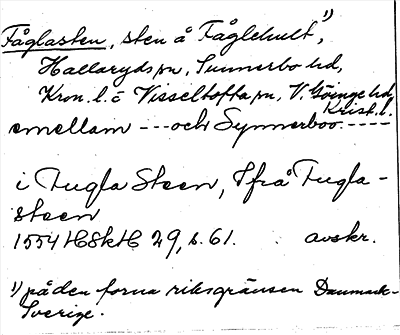 Fåglasten, sten å Fåglehult,¹⁾
Hallaryds sn, Sunnerbo hd,
Kron. l. o. Visseltofta sn, V. Göinge hd,
Krist. l.
emellam --- och Synnerboo -----
i Fugla Steen, Ifrå Fugla-
steen
1554 HSkH 29, s. 61. avskr.
¹⁾ på den forna riksgränsen Danmark-
Sverige.